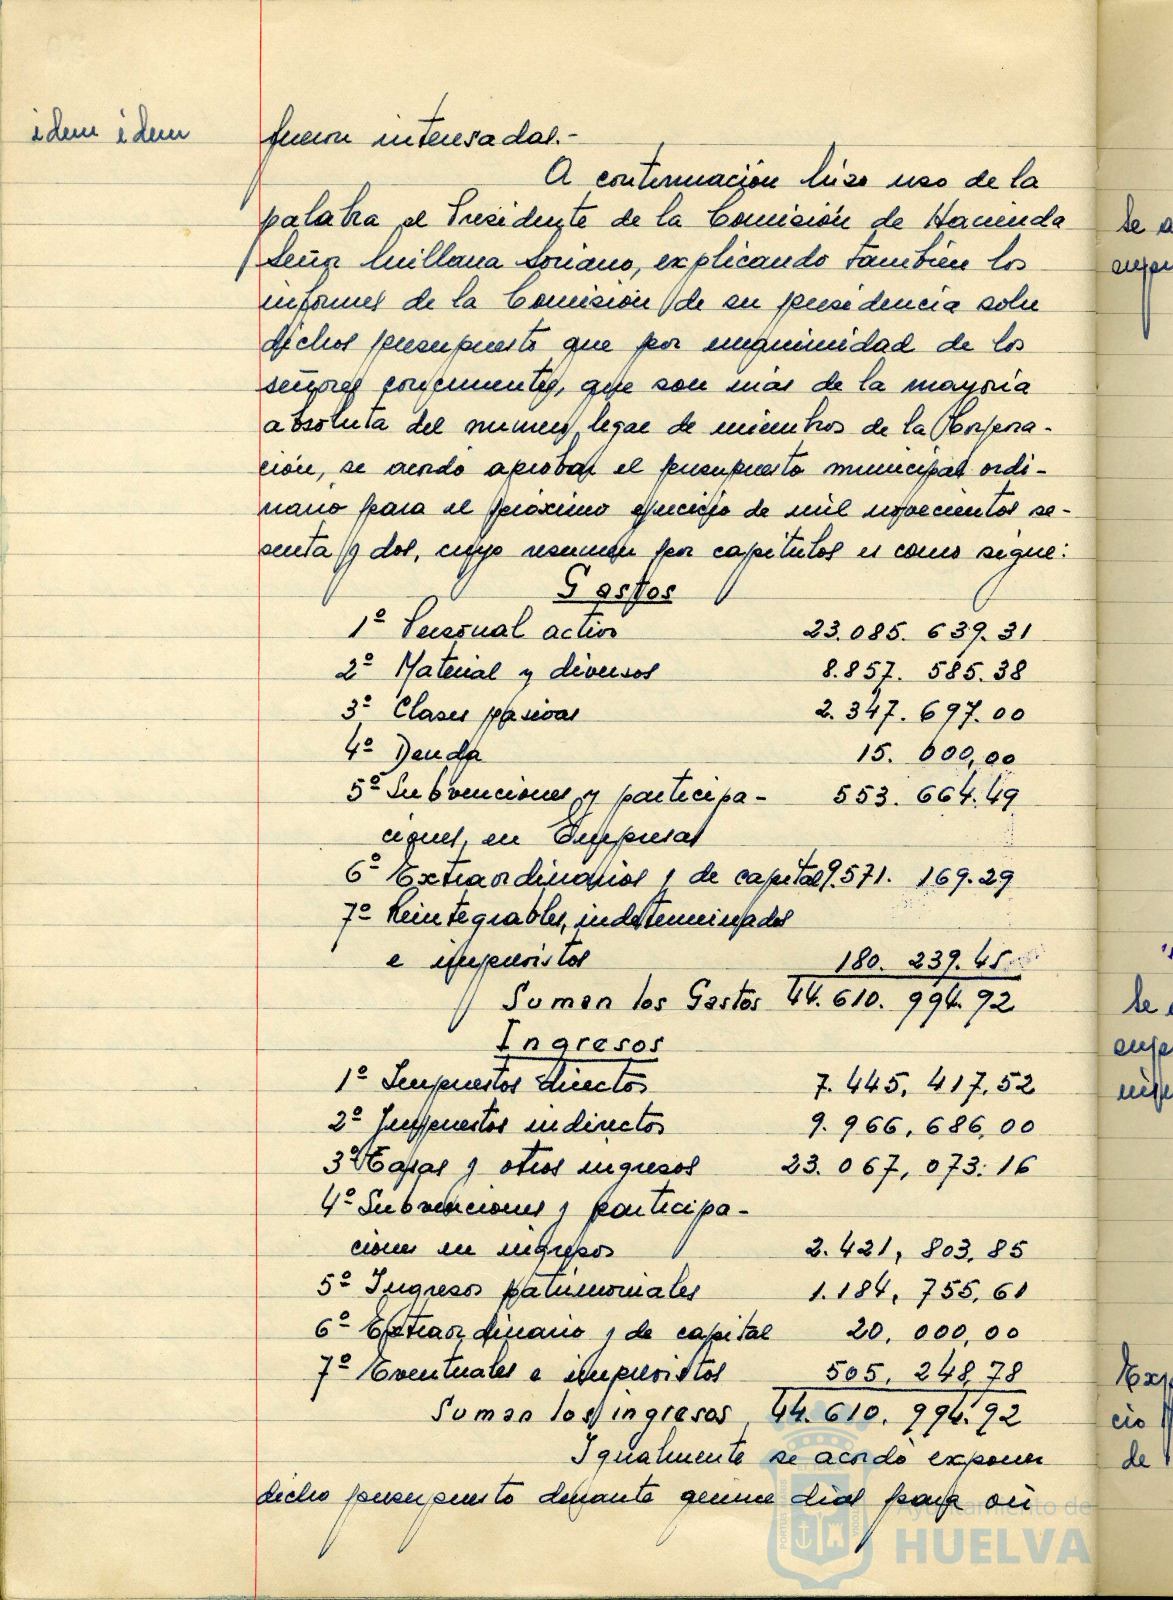 idem idem
fueron interesadas.-
A continuación hizo uso de la
palabra el Presidente de la Comisión de Hacienda
Señor Millana Soriano, explicando también los
informes de la Comisión de su presidencia sobre
dichos presupuesto que por unanimidad de los
señores concurrentes, que son más de la mayoría
absoluta del numero legal de miembros de la Corpora-
ción, se acordó aprobar el presupuesto municipal ordi-
nario para el próximo ejercicio de mil novecientos se-
senta y dos, cuyo resumen por capitulos es como sigue:
Gastos
1º Personal activo 23.085.639.31
2º Material y diversos 8.857.585.38
3º Clases pasivas 2.347.697.00
4º Deuda 15.000,00
5º Subvenciones y participa- 553.664.49
ciones, en Empresas
6º Extraordinarios y de capital 9.571.169.29
7º Reintegrables, indeterminados
e imprevistos 180.239.45
Suman los Gastos 44.610.994.92
Ingresos
1º Impuestos directos 7.445,417,52
2º Impuestos indirectos 9.966,686,00
3º Tasas y otros ingresos 23.067,073:16
4º Subvenciones y participa-
ciones en ingresos 2.421,803,85
5º Ingresos patrimoniales 1.184,755,61
6º Extraordinario y de capital 20,000,00
7º Eventuales e imprevistos 505,248,78
Suman los ingresos 44.610.994.92
Igualmente se acordó exponer
dicho presupuesto durante quince dias para oir
Ayuntamiento de
HUELVA